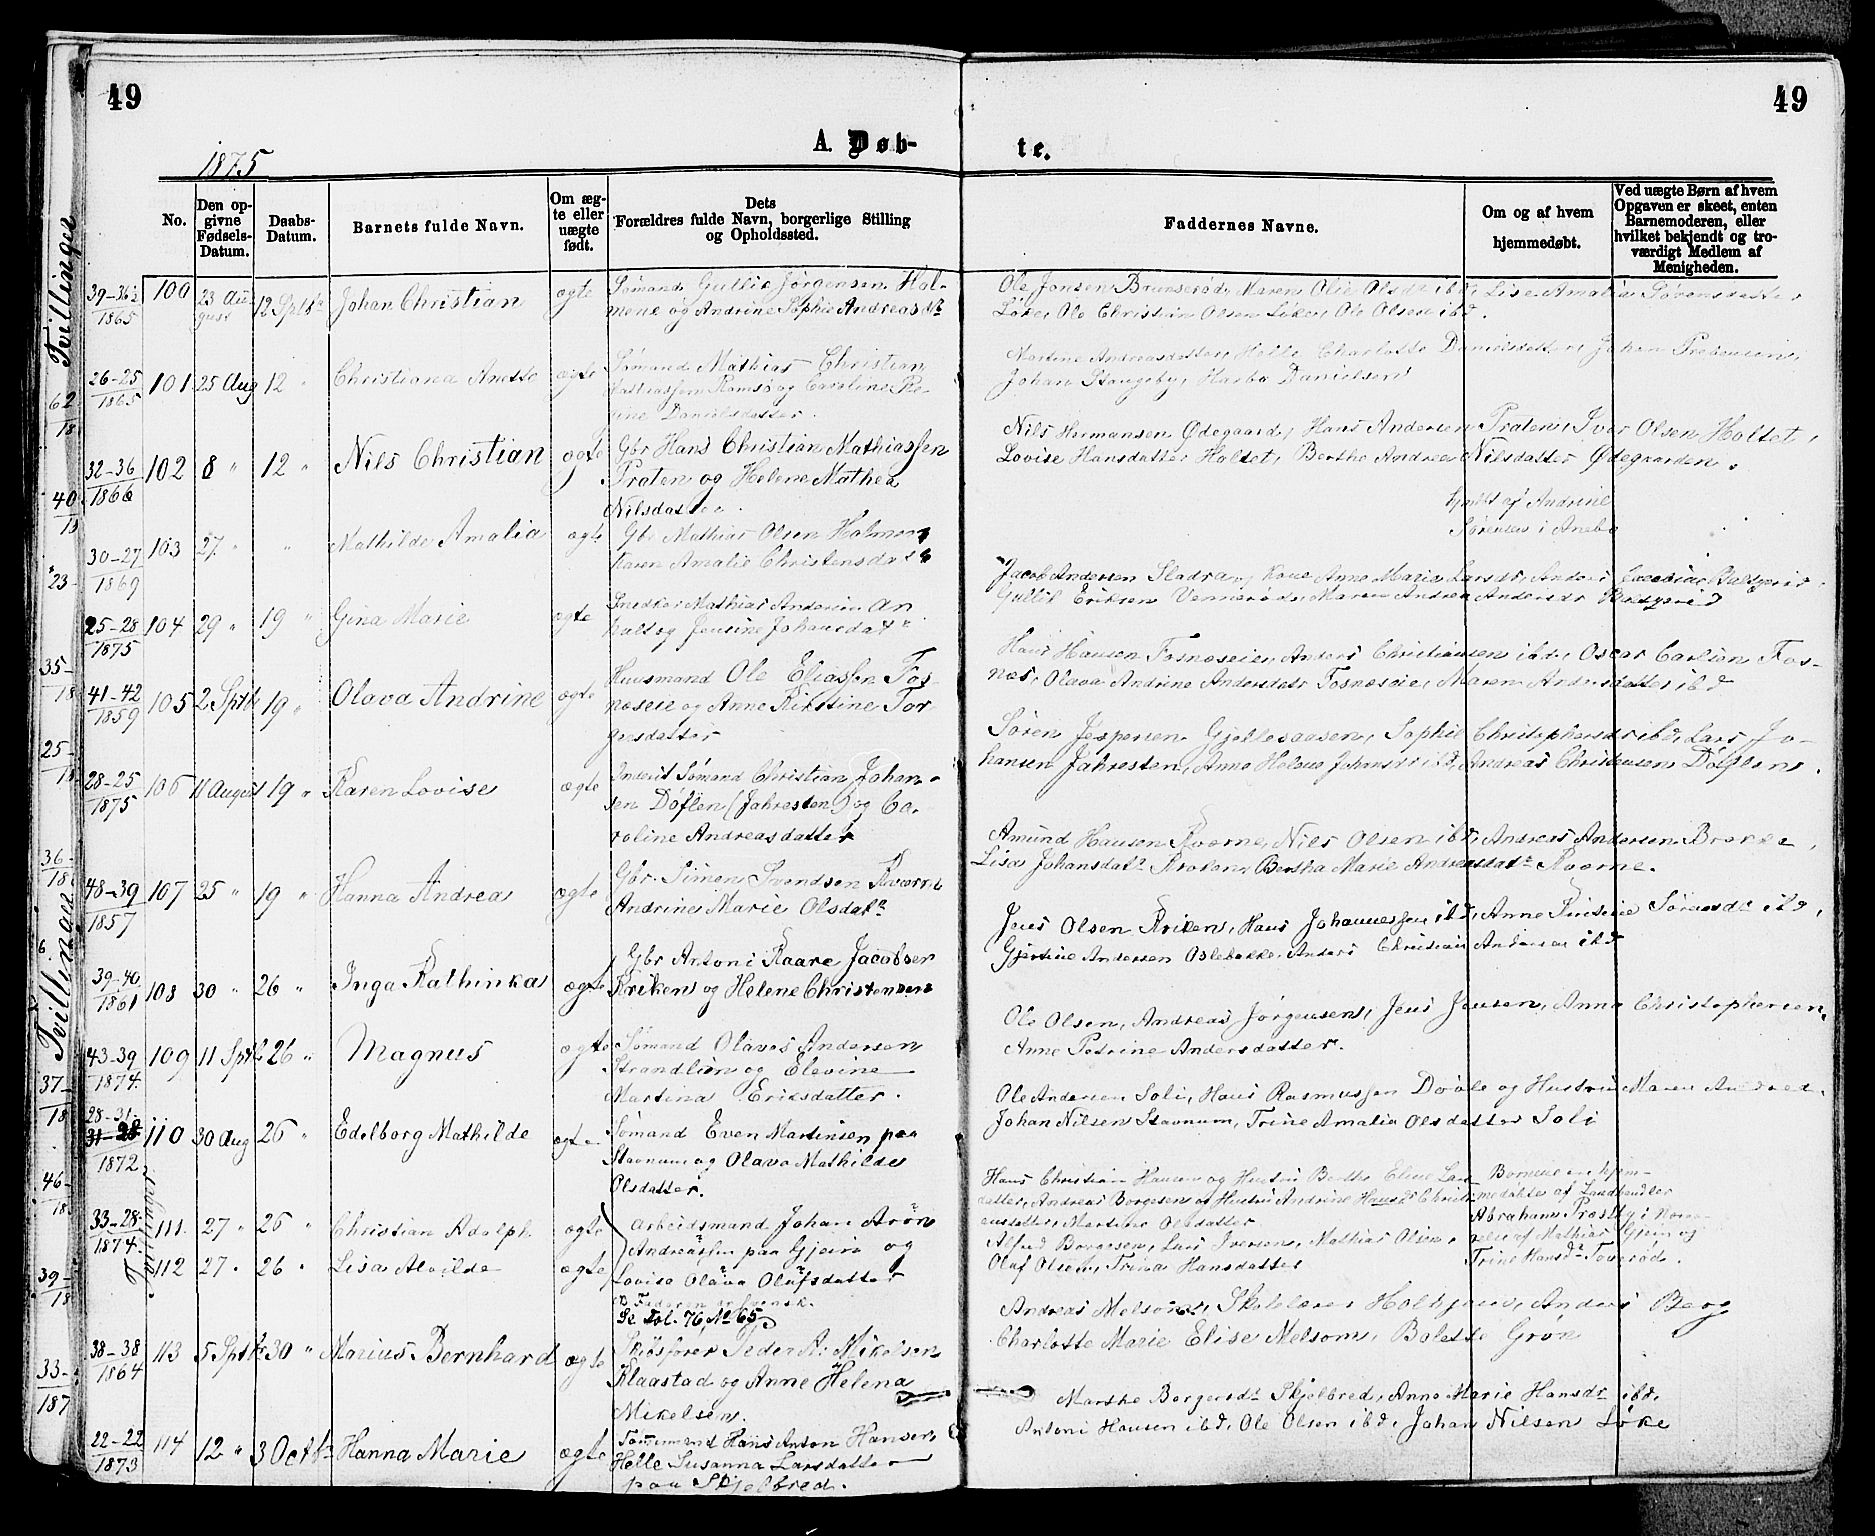 49
49
A. Døb-
te.
1875
No.
Den opgivne Fødsels-Datum.
Daabs-Datum.
Barnets fulde Navn.
Om ægte eller uægte født.
Dets Forældres fulde Navn, borgerlige Stilling og Opholdssted.
Faddernes Navne.
Om og af hvem hjemmedøbt.
Ved uægte Børn af hvem Opgaven er skeet, enten Barnemoderen, eller hvilket bekjendt og troværdigt Medlem af Menigheden.
Tvillinger
39-36½
1865
100
23 August
12 Sptbr
Johan Christian
ægte
Sømand Gullik Jørgensen Hol-
mene og Andrine Sophie Andreasdtr
Ole Jonsen Brunserød, Maren Olie Olsdtr ibd, Lise Amalia Sørensdatter
Løke, Ole Christian Olsen Løke, Ole Olsen ibd.
26-25
1865
101
25 Aug
12 "
Christiana Anette
ægte
Sømand Mathias Christian
Mathiassen Ramsø og Caroline Re-
gine Danielsdatter.
Martine Andreasdatter, Helle Charlotte Danielsdatter, Johan
Johan Stangeby, Harbo Danielsen
32-36
1866
102
8 "
12 "
Nils Christian
ægte
Gbr Hans Christian Mathiassen
Praten og Helene Mathea
Nilsdatter.
Nils Hermansen Ødegaard, Hans Andersen Praten, Ivar Olsen Holtet,
Lovise Hansdatter Holtet, Berthe Andrea Nilsdatter Ødegaarden.
30-27
1869
103
27 "
"
Mathilde Amalia
ægte
Gbr Mathias Olsen Holmen
Karen Amalie Christensdatter
Hjmdbt af Andrine
Sørensen i Anebo
25-28
1875
104
29 "
19 "
Gina Marie
ægte
Snedker Mathias Andersen An
holt og Jensine Johansdatr
Jacob Andersen Sladra, Kone Anne Marie Larsdr, Anders
Gullik Eriksen Vennerød, Maren Andrea Andersdr
41-42
1859
105
2 Sptbr
19 "
Olava Andrine
ægte
Huusmand Ole Eliassen Fos-
næseie og Anne Kirstine Tor
gersdatter
Hans Hansen Fosnæseie, Anders Christiansen ibd, Oscar Carlson Fos-
næs, Olava Andrine Andersdatr Fosnæseie, Maren Andersdatter ibd
28-25
1875
106
11 August
19 "
Karen Lovise
ægte
Inderst Sømand Christian Johan-
sen Døflen (Jahresten) og Ca-
roline Andreasdatter
Søren Jespersen Gjellesaasen, Sophie Christophersdr ibd, Lars Jo-
hansen Jahresten, Anne Helene Johansdr ibd, Andreas Christensen Døflen.
48-39
1857
107
25 "
19 "
Hanna Andrea
ægte
Gbr. Simen Svendsen Kværne
Andrine Marie Olsdatr
Amund Hansen Kverne, Nils Olsen ibd, Andreas Andersen Brekke,
Lisa Johansdatr Kroken, Bertha Marie Andreasdatr Kverne.
39-40
1861
108
30 "
26 "
Inga Kathinka
ægte
Gbr Antoni Kaare Jacobsen
Kriken og Helene Christensen
Jens Olsen Kriken, Hans Johannessen ibd, Anne Sørensdr ibd,
Gjertine Andersen Oslebakke, Anders Christian Andersen ibd
43-39
1874
109
11 Sptbr
26 "
Magnus
ægte
Sømand Olaves Andersen
Strandlien og Elevine
Martina Eriksdatter.
Ole Olsen, Andreas Jørgensen, Jens Jensen, Anna Christophersen,
Anne Petrine Andersdatter.
28-31
31-28
1872
110
30 Aug
26 "
Edelborg Mathilde
ægte
Sømand Even Martinsen paa
Stavnum og Olava Mathilde
Olsdatter.
Ole Andersen Soli, Hans Rasmussen Dovle og Hustru Maren Andrea
Johan Nilsen Stavnum, Trine Amalia Olsdatter Soli
Tvillinger
33-28
1874
111
27 "
26 "
Christian Adolph
ægte
Arbeidsmand Johan Arøn
Andreassen paa Gjein og
Lovise Olava Olufsdatter
Faderen er svensk.
Se Fol. 76, No 65
Hans Christian Hansen og Hustru Berthe Eline Lars-
datter, Andreas Borgesen og Hustru Andrine Hansdr Christi-
ensdatter, Martine Olsdatter
Børnene ere hjem-
medøbte af Landhandler
Abraham
112
27 "
26 "
Lisa Alvilde
ægte
Alfred Borgesen, Lars Iversen, Mathias Olsen,
Oluf Olsen, Trina Hansdatter
Mathias Gjein og
Trine Hansdr Toverød.
38-38
1864
113
5 Sptbr
30 "
Marius Bernhard
ægte
Skibsfører Peder A. Mikelsen
Klaastad og Anne Helena
Mikelsen.
Andreas Melsom, Skolelærer Holhjem, Anders Berg
Charlotte Marie Elise Melsom, Bolette Grøn
22-22
1873
114
12 "
3 Octbr
Hanna Marie
ægte
Tømmermand Hans Anton Hansen
Helle Susanna Larsdatter
paa Skjelbred.
Marthe Borgersdr Skjelbred, Anne Marie Hansdr ibd,
Antoni Hansen ibd, Ole Olsen ibd, Johan Nilsen Løke